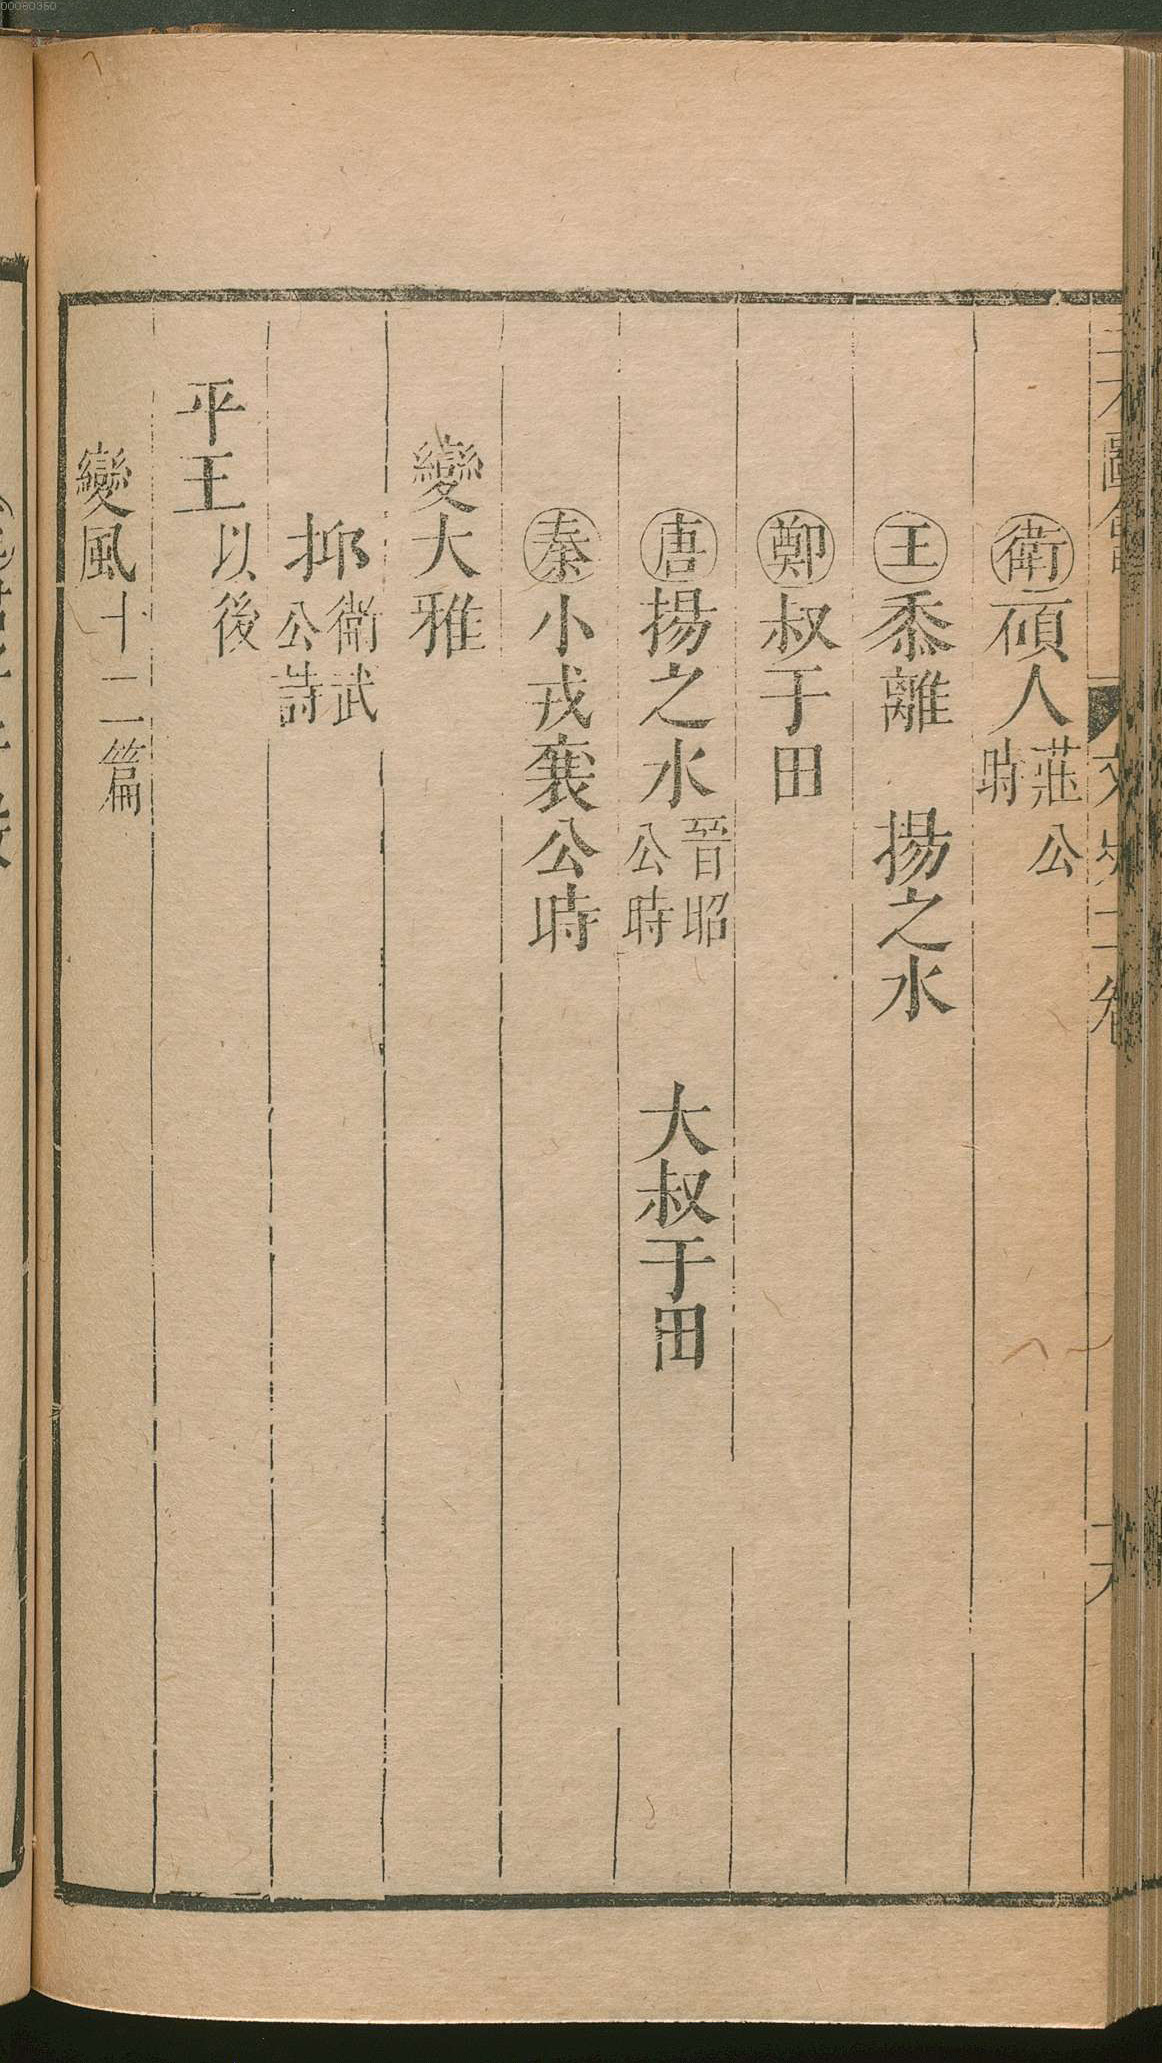 00080350
三才圖會
文史二卷
衛碩人莊公時
王黍離 揚之水
鄭叔于田
唐揚之水晉昭公時 大叔于田
秦小戎襄公時
變大雅
抑衛武公詩
平王以後
變風十二篇